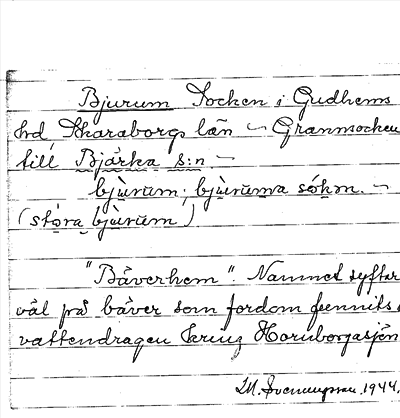 Bjurum Socken i Gudhems
hd, Skaraborgs län – Grannsocken
till Bjärka s:n –
bjùrum; bjùruma sókņ. –
(stóra bjùrum)
"Bäverhem". Namnet syftar
väl på bäver som fordom funnits i
vattendragen kring Hornborgasjön
M. 1944.